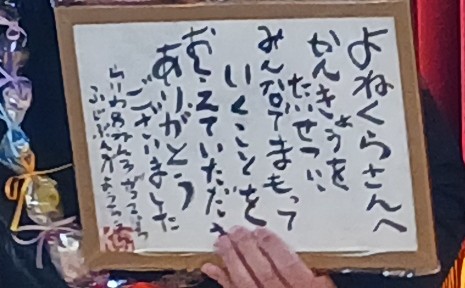 よねくらさんへ
かんきょうを
たいせつに
みんなでまもって
いくことを
おしえていただき
ありがとう
ございました